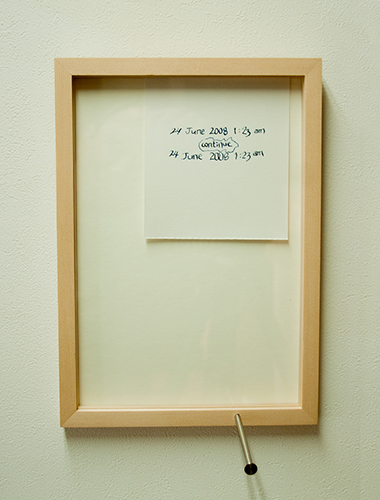 24 June 2008 1:23 am
continue
24 June 2008 1:23 am